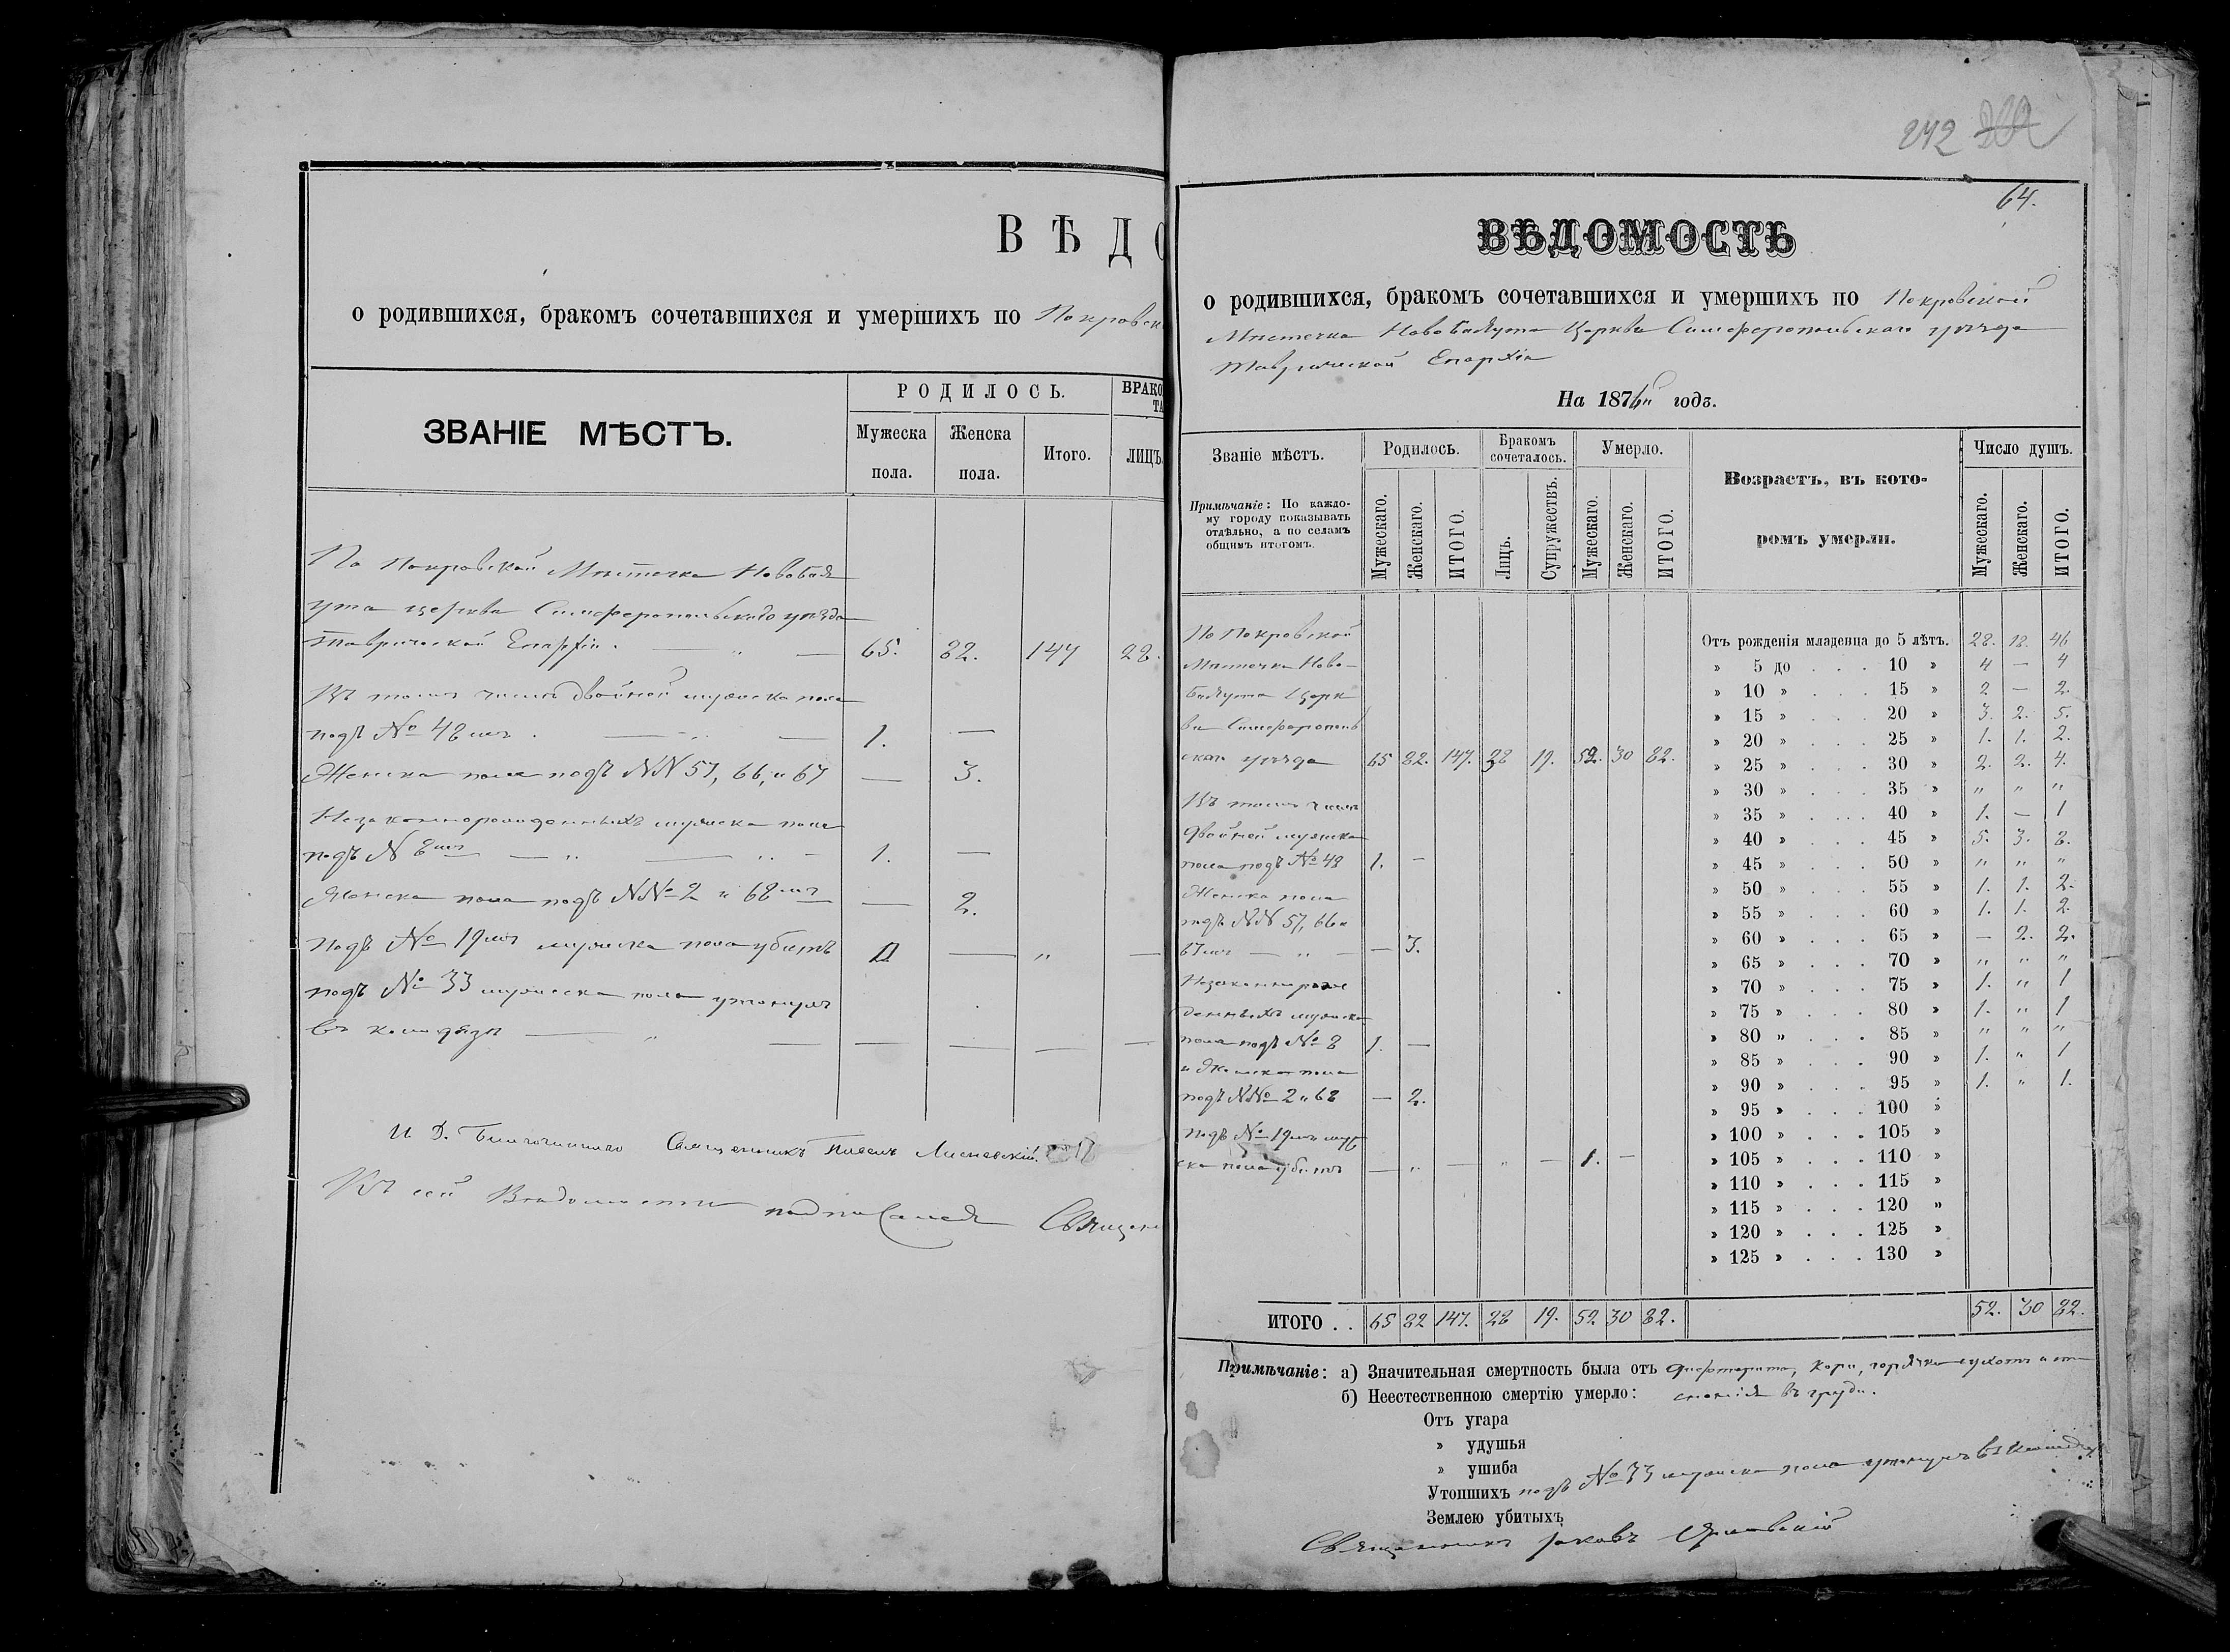 ВѢДО
о родившихся, бракомъ сочетавшихся и умершихъ по Покровск
ЗВАНІЕ МѢСТЪ.
РОДИЛОСЬ.
БРАКО
ТА
Мужеска пола.
Женска пола.
Итого.
ЛИЦЪ.
По Покровской Мѣстечка Новобая
ута церкви Симферопольскаго уѣзда
Таврической Епархіи. — „ — 65. 82. 147 28.
Въ томъ числѣ двойней мужеска пола
подъ № 48мъ . — „ — 1. —
Женска пола подъ NN 57, 66, и 67 — 3.
Незаконнорожденныхъ мужеска пола
подъ N 8мъ — „ — „ — 1. —
Женска пола подъ N№ 2 и 68мъ — 2.
Подъ № 19мъ мужеска пола убитъ — „ —
подъ № 33 мужеска пола утонулъ
въ колодязѣ — „ — — — — —
И. Д. Благочиннаго Священникъ
Къ сей Вѣдомости подписался Священ
242
64.
ВѢДОМОСТЬ
о родившихся, бракомъ сочетавшихся и умершихъ по Покровской
Мѣстечка Новобаяута Церкви Симферопольскаго уѣзда
Таврической Епархіи
На 1876й годъ.
Званіе мѣстъ.
Примѣчаніе: По каждо-
му городу показывать
отдѣльно, а по селамъ
общимъ итогомъ.
Родилось.
Бракомъ сочеталось.
Умерло.
Возрастъ, въ кото-
ромъ умерли.
Число душъ.
Мужескаго. Женскаго. ИТОГО. Лицъ. Супружествъ. Мужескаго. Женскаго. ИТОГО. Мужескаго. Женскаго. ИТОГО.
По Покровской
Мѣстечка Ново-
баяута Церк
ви Симферополь
скаго уѣзда 65 82. 147. 38 19. 52. 30 82.
Въ томъ числѣ
двойней мужеска
пола подъ № 48 1. —
Женска пола
подъ NN 57, 66 и
67мъ — „ — — 3.
Незаконнорож
денныхъ мужеска
пола подъ № 8 1. —
и Женска пола
подъ N№ 2 и 68 — 2.
Подъ № 19мъ муже
ска пола убитъ — „ — „ — 1. —
Отъ рожденія младенца до 5 лѣтъ. 28. 18. 46
» 5 до . . . 10 » 4 — 4
» 10 » . . . 15 » 2 — 2.
» 15 » . . . 20 » 3. 2. 5.
» 20 » . . . 25 » 1. 1. 2.
» 25 » . . . 30 » 2. 2. 4.
» 30 » . . . 35 » „ „ „
» 35 » . . . 40 » 1. — 1
» 40 » . . . 45 » 5. 3. 8.
» 45 » . . . 50 » „ „ „
» 50 » . . . 55 » 1. 1. 2.
» 55 » . . . 60 » 1. 1. 2.
» 60 » . . . 65 » — 2. 2.
» 65 » . . . 70 » „ „ „
» 70 » . . . 75 » 1. „ 1
» 75 » . . . 80 » 1. „ 1
» 80 » . . . 85 » „ „ „
» 85 » . . . 90 » 1. „ 1
» 90 » . . . 95 » 1. „ 1.
» 95 » . . . 100 »
» 100 » . . . 105 »
» 105 » . . . 110 »
» 110 » . . . 115 »
» 115 » . . . 120 »
» 120 » . . . 125 »
» 125 » . . . 130 »
ИТОГО . . 65 82 147. 28 19. 52 30 82. 52. 30 82.
Примѣчаніе: а) Значительная смертность была отъ дифтерита, кори, горячки
б) Неестественною смертію умерло: въ груди.
Отъ угара
» удушья
» ушиба
Утопшихъ подъ № 33 мужеска пола утонулъ въ
Землею убитыхъ
Священникъ Іаковъ